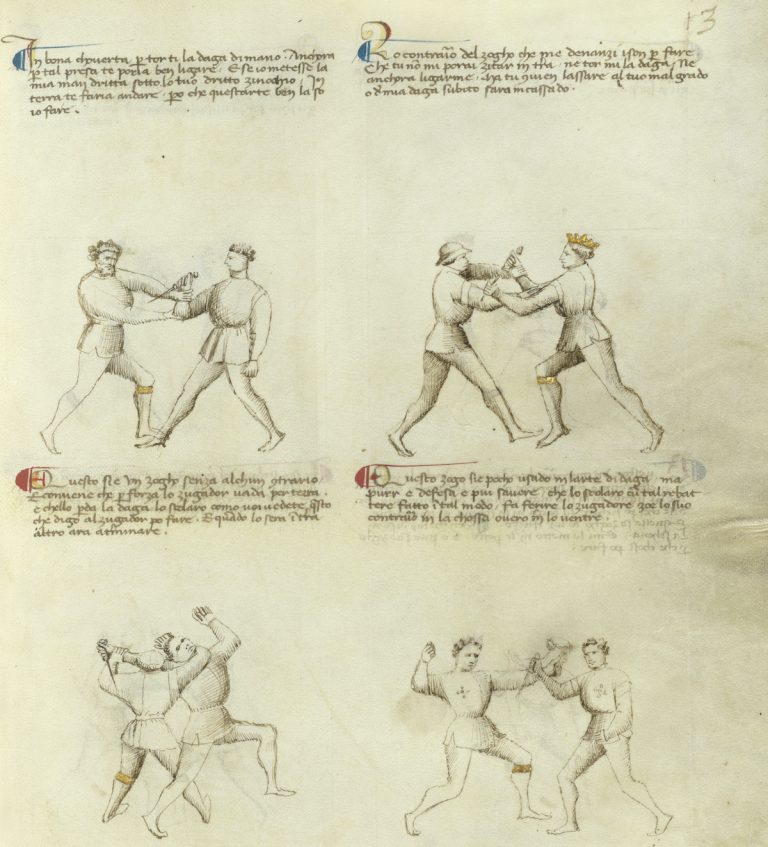 13
In bona coverta per tor ti la daga di mano. Anchora
per tal presa te poria ben ligare. E se io metesse la
mia man dritta sotto lo tuo dritto zinochio. In
terra te faria andare. per che quest'arte ben la so
io fare.
Lo contrario del zogho che me denanzi i son per fare
Che tu non mi porai zitar in tra. ne tor mi la daga. ne
anchora ligarme. lassare al tuo mal grado
o de mia daga subito sarai incassado.
Questo si e un zogho senza alchun contrario
E conviene che per forza lo zugador vada per terra.
e ch'ello perda la daga. lo scolaro como voi vedete questo
che digo al zugador po fare. E quando lo sera in tra
altro ara a terminare.
Questo zogo si e pocho usado in l'arte di daga. ma
purr e defesa e piui savere. che lo scolaro cum tal rebat
tere fatto in tal modo. fa ferire lo zugadore. zoe lo suo
contrario in la chossa overo in lo ventre.